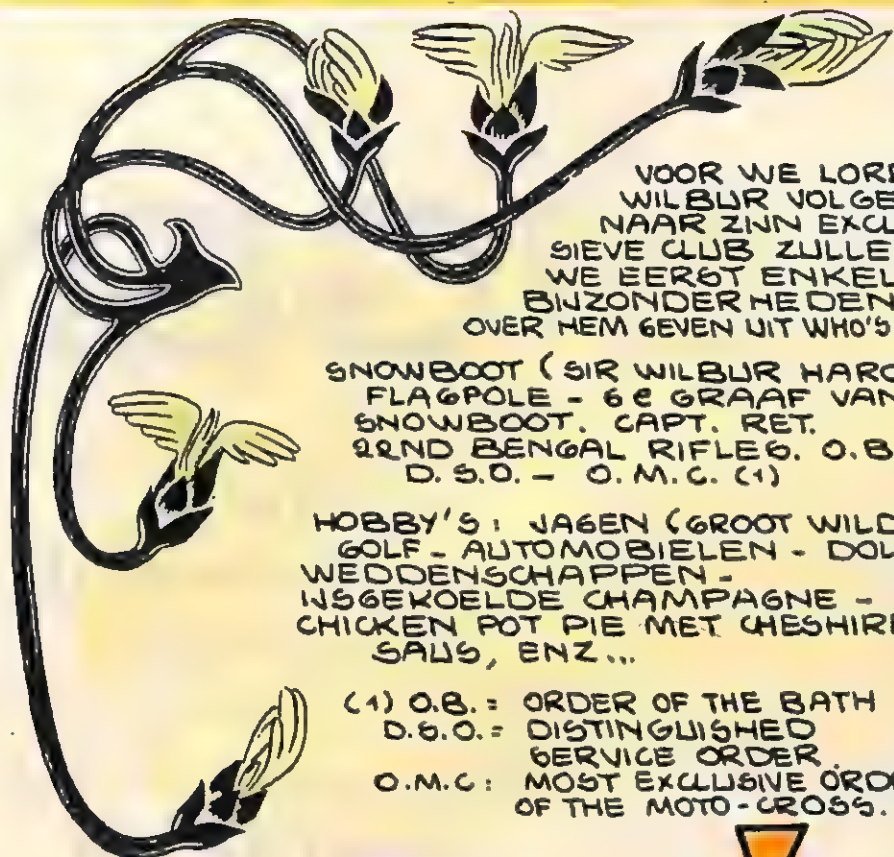 VOOR WE LORD
WILBUR VOLGE
NAAR ZIJN EXCLU
SIEVE CLUB ZULLE
WE EERST ENKEL
BIJZONDERHEDEN
OVER HEM GEVEN UIT WHO'S
SNOWBOOT (SIR WILBUR HARO
FLAGPOLE - 6e GRAAF VAN
SNOWBOOT. CAPT. RET.
22ND BENGAL RIFLES. O.B.
D.S.O. - O.M.C. (1)
HOBBY'S: JAGEN (GROOT WILD
GOLF - AUTOMOBIELEN - DOL
WEDDENSCHAPPEN -
IJSGEKOELDE CHAMPAGNE -
CHICKEN POT PIE MET CHESHIRE
SAUS, ENZ...
(1) O.B. = ORDER OF THE BATH
D.S.O. = DISTINGUISHED
SERVICE ORDER.
O.M.C: MOST EXCLUSIVE ORD
OF THE MOTO-CROSS.